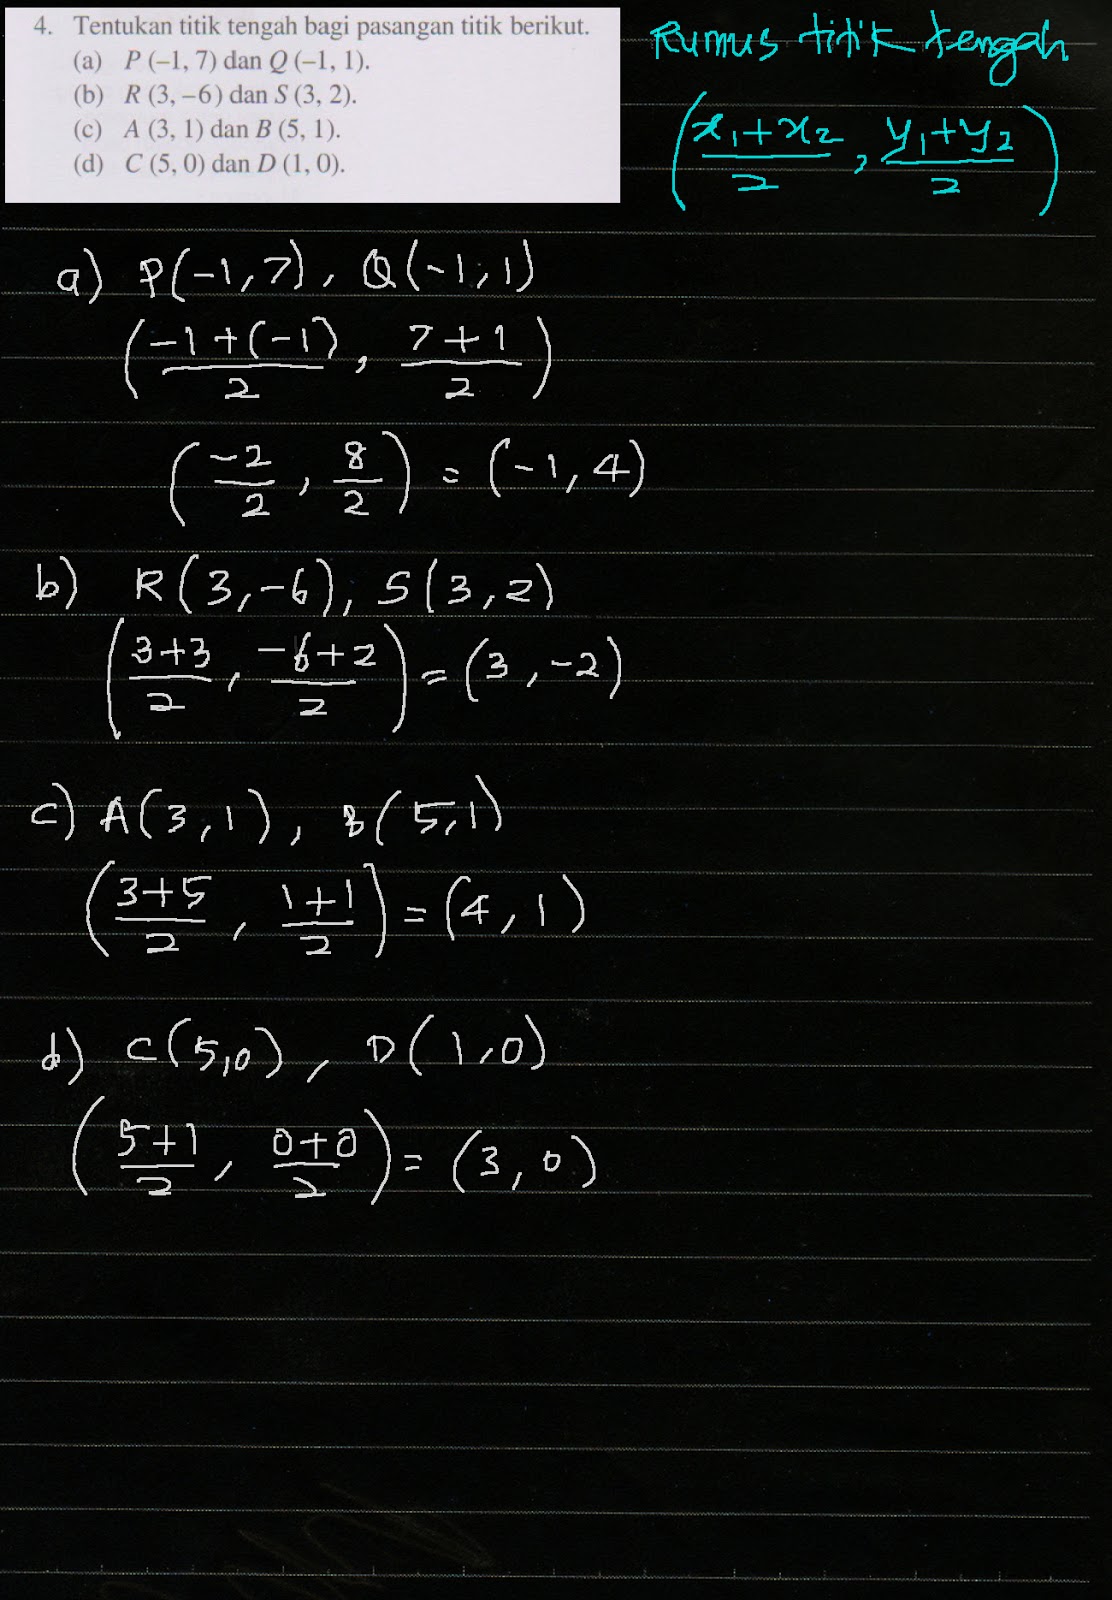 4. Tentukan titik tengah bagi pasangan titik berikut.
(a) P (–1, 7) dan Q (–1, 1).
(b) R (3, –6) dan S (3, 2).
(c) A (3, 1) dan B (5, 1).
(d) C (5, 0) dan D (1, 0).
Rumus titik tengah
(x₁+x₂/2, y₁+y₂/2)
a) P(-1,7), Q(-1,1)
(-1+(-1)/2, 7+1/2)
(-2/2, 8/2) = (-1,4)
b) R(3,-6), S(3,2)
(3+3/2, -6+2/2) = (3,-2)
c) A(3,1), B(5,1)
(3+5/2, 1+1/2) = (4,1)
d) C(5,0), D(1,0)
(5+1/2, 0+0/2) = (3,0)